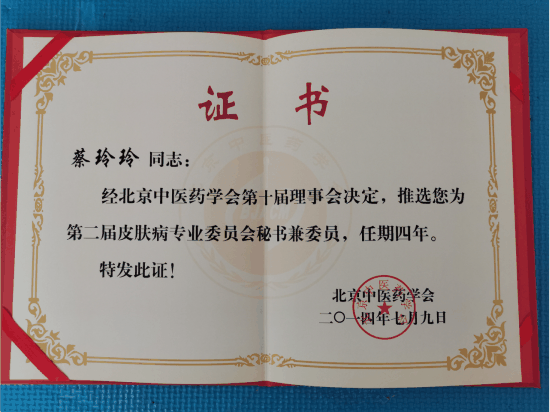 证 书
蔡玲玲 同志：
经北京中医药学会第十届理事会决定，推选您为
第二届皮肤病专业委员会秘书兼委员，任期四年。
特发此证！
北京中医药学会
二〇一四年七月九日